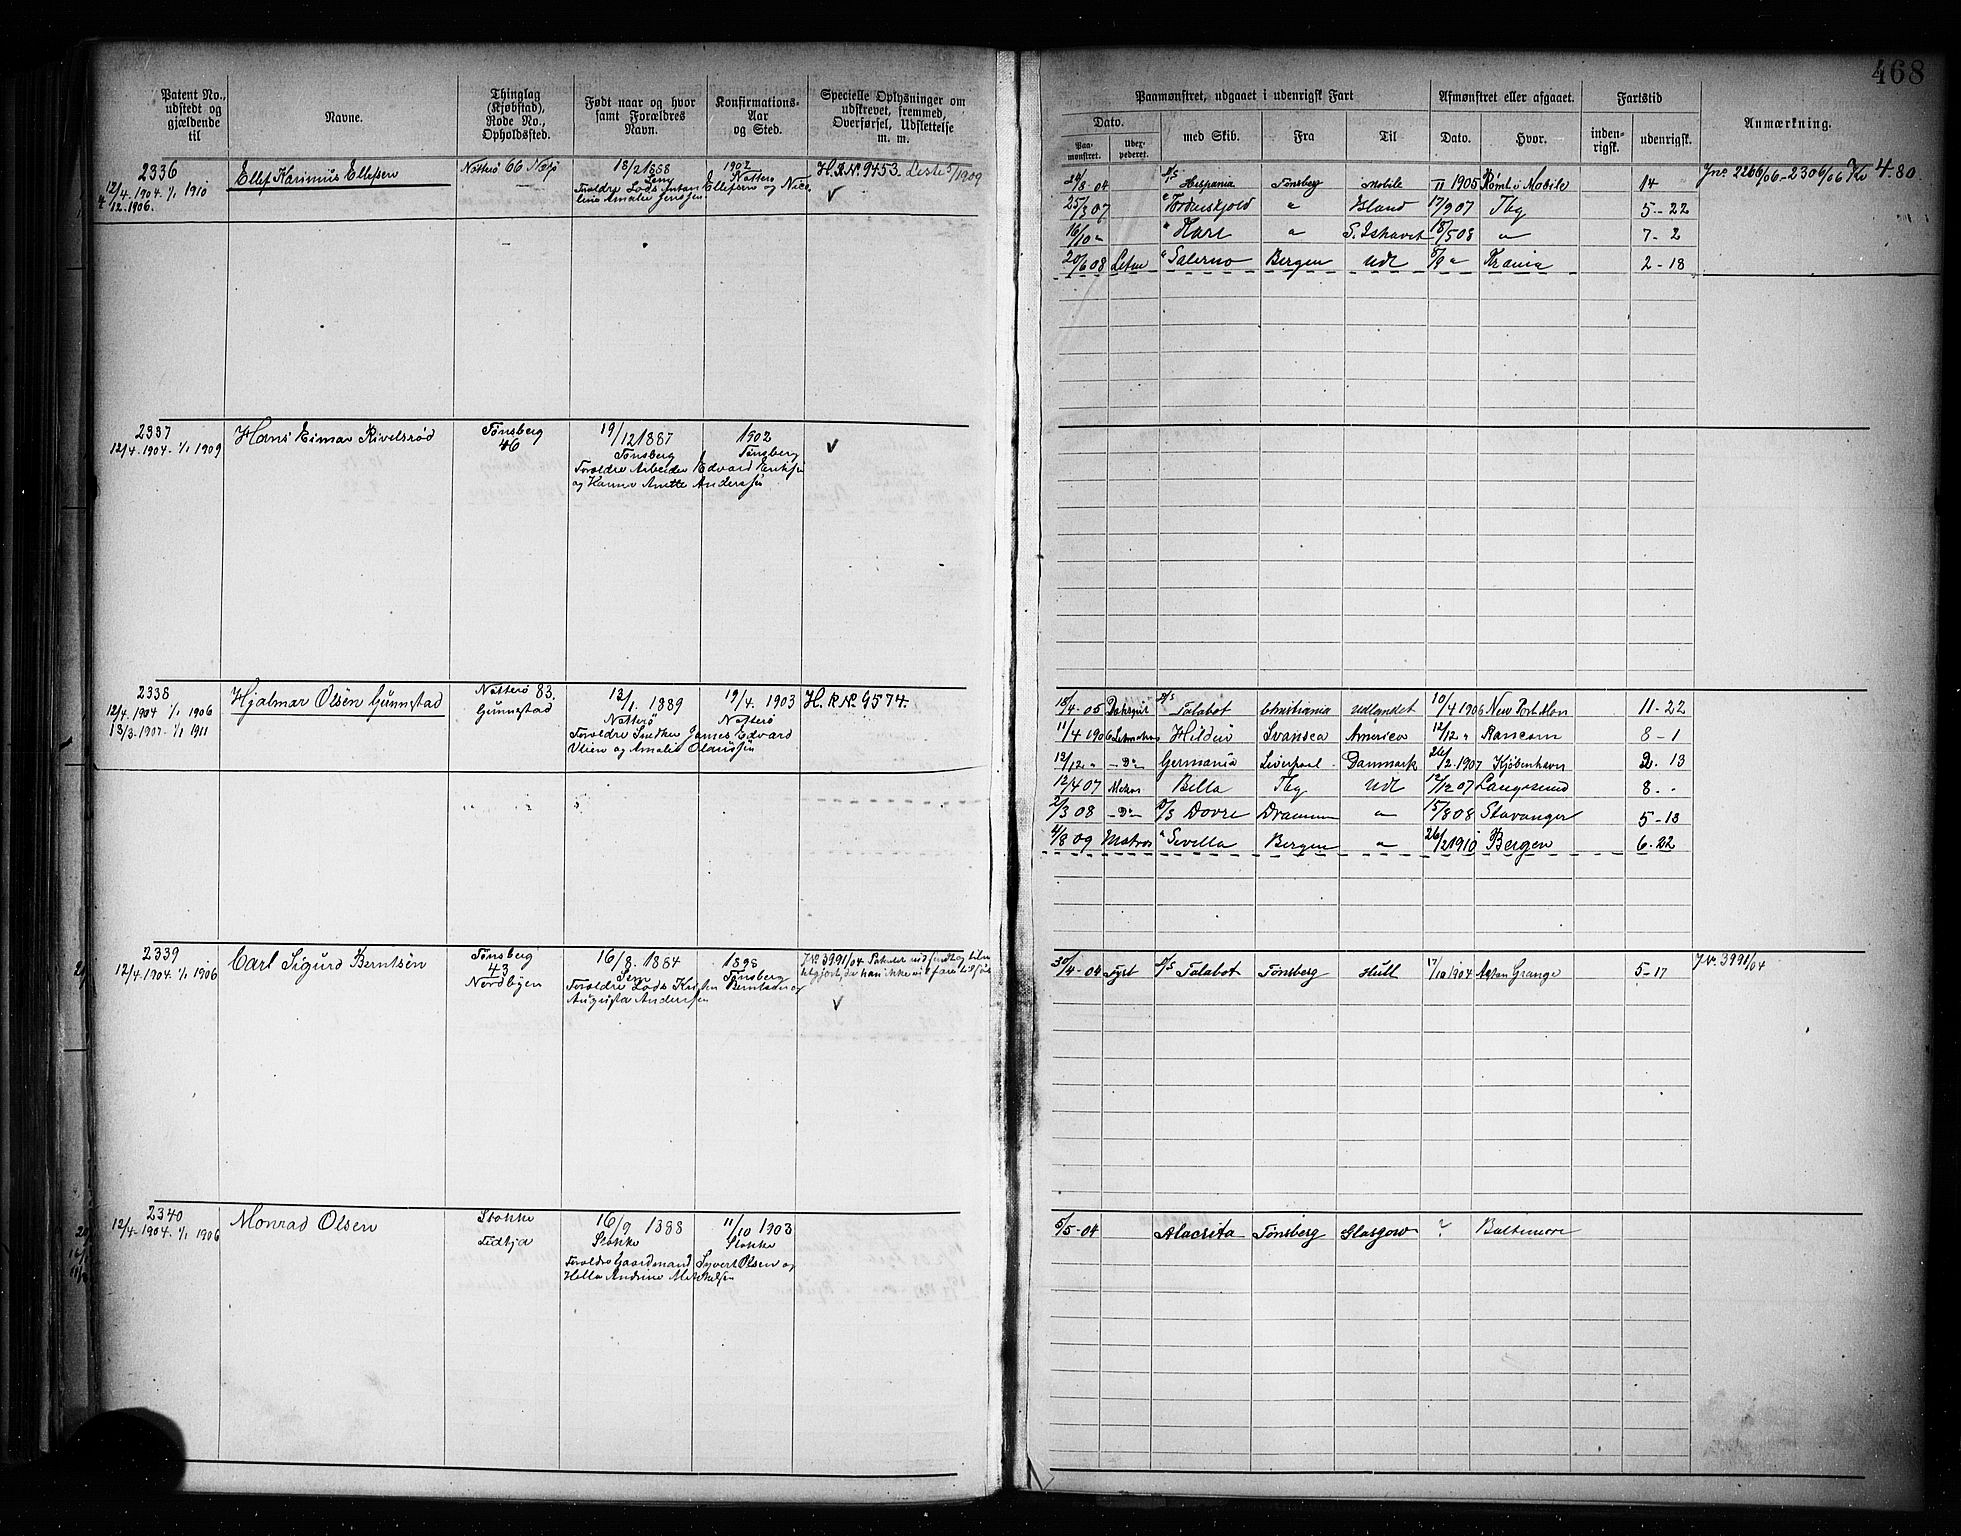 468
Patent No., udstedt og gjældende til
Navne.
Thinglag (Kjøbstad), Rode No., Opholdssted.
Født naar og hvor samt Forældres Navn.
Konfirmations-Aar og Sted.
Specielle Oplysninger om udskrevet, fremmed, Overførsel, Udslettelse m. m.
Paamønstret, udgaaet i udenrigsk Fart
Afmønstret eller afgaaet.
Fartstid
Anmærkning.
Dato.
med Skib.
Fra
Til
Dato.
Hvor.
inden-rigsk.
udenrigsk.
Paa-mønstret.
2336
12/4. 1904. 1/1 1910
4/12. 1906.
Ellef Karinius Ellefsen
Nøtterø 66
18/2 1888
Sem
Forældre Lods Anton Ellefsen og Nico
line Amalie Jensen
1902
Nøtterø
H.R.No 9453.
24/8 04 S/S Hispania Tønsberg Mobile 11 1905 Rømt i Mobile 14
Jnr. 2266/06 - 2306/06 Kr 4.80
25/3 07 " Tordenskjold " Island 17/9 07 Tbg 5-22
16/10 " " Hart " S. Ishavet 18/5 08 " 7-2
20/6 08 Letm " Salerno Bergen Udl 8/9 " Krania 2-18
2337
12/4. 1904. 1/1 1909
Hans Eimar Rivelsrød
Tønsberg
46
19/12 1887
Tønsberg
Forældre Arbeider Edvard
og Hanna Anette Anderssen
1902
Tønsberg
2338
12/4. 1904 1/1 1906
13/3. 1907. 1/1 1911
Hjalmar Olsen Gunnestad
Nøtterø 83.
Gunnestad
13/1. 1889
Nøtterø
Forældre Snedker James Edvard
Olsen og Amalie Olaussen
19/4. 1903
Nøtterø
H.R.No 9574.
18/4-05 S/S Talabot Christiania Udlandet 10/4 1906 New Port Mon 11-22
11/4 1906 Letmatros Hildur Svansea America 12/12 " Rancorn 8-1
12/12 " - Do - Germania Liverpool Danmark 26/2 1907 Kjøbenhavn 2. 13
12/4 07 Matros Bella Tbg Udl 12/12 07 Langesund 8 -
2/3 08 - Do - D/S Dovre Drammen " 15/8 08 Stavanger 5-13
4/8 09 Matros " Sevilla Bergen " 26/2 1910 Bergen 6-22
2339
12/4. 1904. 1/1 1906
Carl Sigurd Berntsen
Tønsberg
43
Nordbyen
16/8. 1884
Sem
Forældre Lods Kristen Berntsen og
Augusta Andersen
1898
Tønsberg
JNo 3991/04.
30/4-04 S/S Talabot Tønsberg Hull 17/10 1904 Aston Grange 5-17
JNo 3991/04
2340
12/4. 1904. 1/1 1906
Monrad Olsen
Stokke
16/9 1888
Stokke
Forældre Gaardmand Syvert Olsen og
Helle Andrine Mathelsen
11/10 1903
Stokke
5/5-04 Alacrita Tønsberg Glasgow ? Baltimore